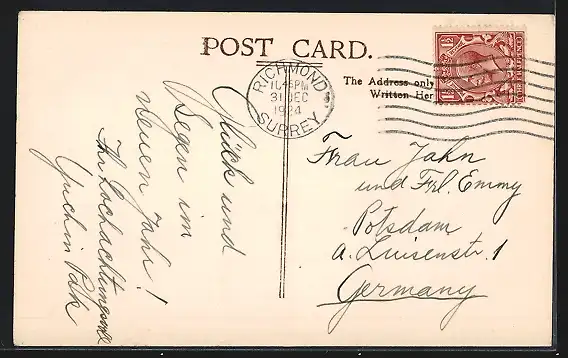 POST CARD.
The Address only
Written Her
RICHMOND
11.45 PM
31 DEC
1924
SURREY
1½
1½
Glück und
Segen im
neuen Jahr!
Ihr hochachtungsvoll
Yuchin Pak
Frau Jahn
und Frl. Emmy
Potsdam
a. Luisenstr. 1
Germany